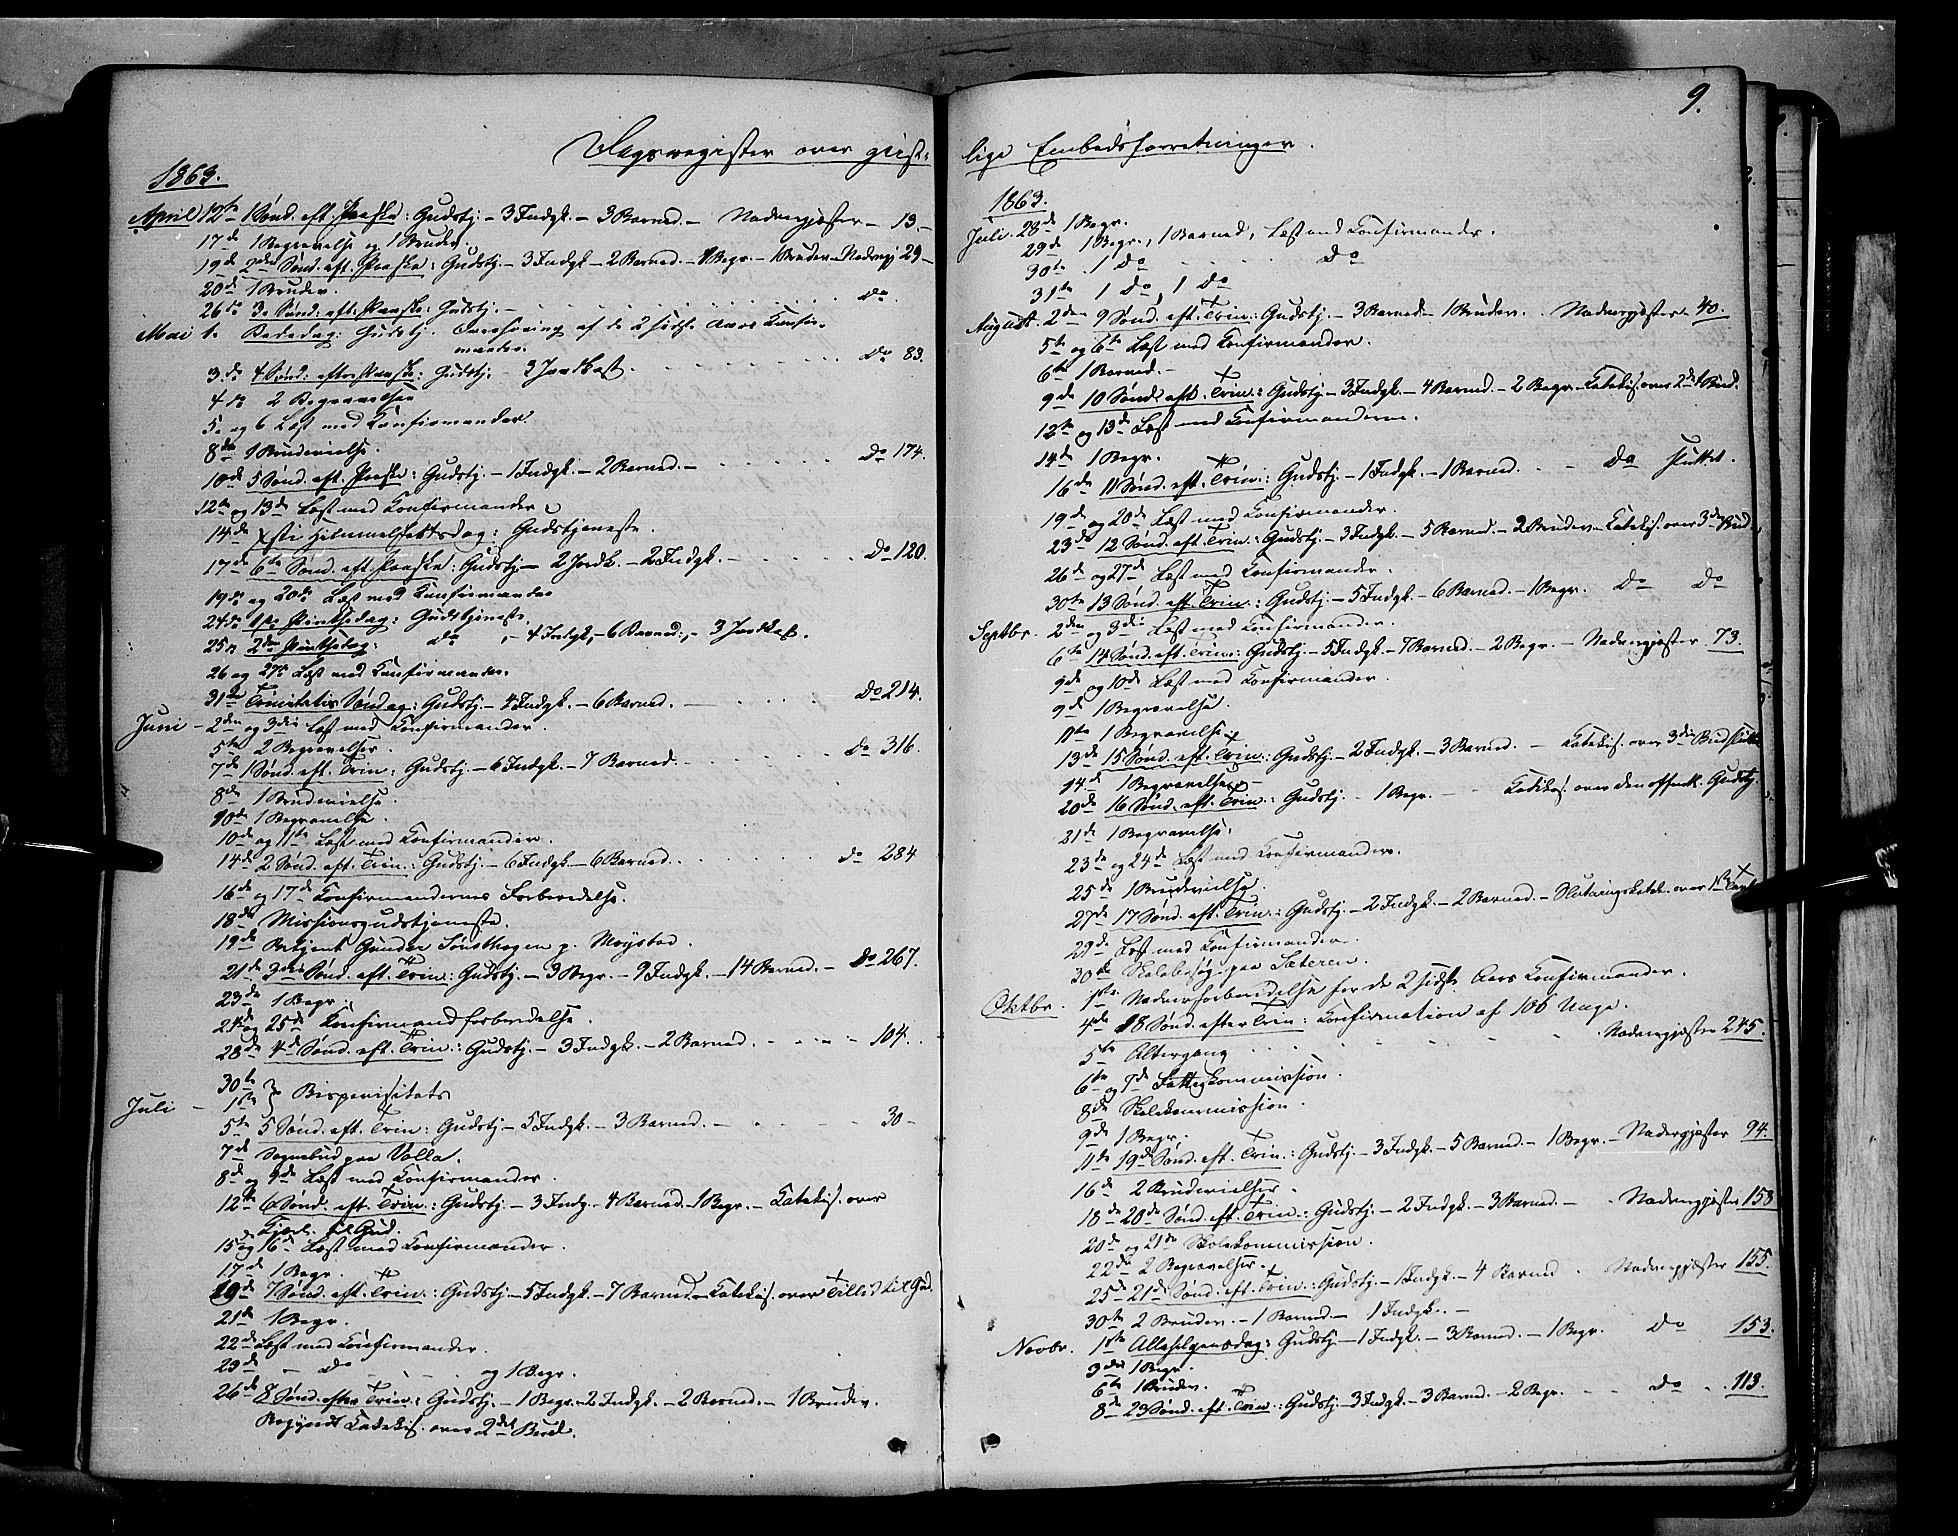 Dagsregister over geist-
1863.
April 12te 1 Sønd. eft. Paaske: Gudstj. – 3 Indgk. – 3 Barned. – Nadvergjæster – 13.
17de 1 Begravelse og 1 Brudev.
19de 2den Sønd. eft. Paaske: Gudstj. – 3 Indgk – 2 Barned. – 1 Begr. – 1 Brudev. – Nadvergj 29 –
20de 1 Brudev.
26de 3. Sønd. eft. Paaske: Gudstj. – Do.
Mai 1. Bededag: Gudstj. af de 2 sidste Aars Konfir-
mander.
3.de 4 Sønd. efter Paaske: Gudstj. – 2 Jordkast. Do 83.
4de 2 Begravelser
5. og 6 Læst med Konfirmander.
8de 1 Brudevielse.
10de 5 Sønd. eft. Paaske: Gudstj. – 1 Indgk. – 2 Barned. – Do 174.
12te og 13de Læst med Konfirmander
14de Xsti Himmelfartsdag: Gudstjeneste.
17de 6te Sønd. eft. Paaske: Gudstj – 2 Jordk. – 2 Indgk. – Do 120.
19de og 20de Læst med Konfirmander
24de 1ste Pintsedag: Gudstjeneste
25de 2den Pintsedag: Do – 4 Indgk. – 6 Barned. – 3 Jordkast.
26 og 27de Læst med Konfirmander.
31te Trinitatis Søndag: Gudstj. – 4 Indgk. – 6 Barned. – Do 214.
Juni – 2den og 3die Læst med Konfirmander.
5te 2 Begravelser.
7de 1 Sønd. eft. Trin: Gudstj. – 6 Indgk. – 7 Barned. Do 316.
8de 1 Brudevielse.
10de 1 Begravelse.
10de og 11te Læst med Konfirmander.
14de 2 Sønd. eft. Trin.: Gudstj. – 6 Indgk. – 6 Barned. Do 284
16de og 17de Konfirmandernes Forberedelse.
18de Missionsgudstjeneste.
19de Betjent Gunder Sønsthagen p. Moystad.
21de 3die Sønd. eft. Trin: Gudstj. – 3 Begr. – 9 Indgk. – 14 Barned. – Do 267.
23de 1 Begr.
24de og 25de Konfirmandforberedelse.
28de 4de Sønd. eft. Trin.: Gudstj. – 3 Indgk. – 2 Barned. – 104.
30te
Juli – 1ste } Bispevisitats
5te 5 Sønd. eft. Trin: Gudstj. – 5 Indgk. – 3 Barned. – 30 –
7de Sognebud paa Volla.
8de og 9de Læst med Konfirmander.
12te 6 Sønd. eft. Trin.: Gudstj. – 3 Indg. – 4 Barned. – 1 Begr. – Katekis. over
Kjærl. til Gud.
15de og 16de Læst med Konfirmander.
17de 1 Begr.
19de 7 Sønd. eft. Trin.: Gudstj. – 5 Indgk. – 7 Barned. – Katekis. over Tillid til Gud.
21de 1 Begr.
22de Læst med Konfirmander.
23de – Do – og 1 Begr.
26de 8 Sønd. efter Trin.: Gudstj. – 1 Begr. – 2 Indgk. – 2 Barned. – 1 Brudev.
Begyndt Katekis. over 2det Bud.
9.
lige Embedsforretninger.
1863.
Juli. 28de 1 Begr.
29de 1 Begr., 1 Barned, Læst med Konfirmander.
30te 1 Do Do
31te 1 Do, 1 Do
August. 2den 9 Sønd. eft. Trin.: Gudstj. – 3 Barned. – 1 Brudev. Nadvergjæster 40.
5te og 6te Læst med Konfirmander.
6te 1 Barned. –
9de 10 Sønd. eft. Trin.: Gudstj. – 3 Indgk. – 4 Barned. – 2 Begr. – Katekis. over 2det Bud.
12te og 13de Læst med Konfirmanderne.
14de 1 Begr.
16de 11 Sønd. eft. Trin.: Gudstj. – 1 Indgk. – 1 Barned. – Do sluttet.
19de og 20de Læst med Konfirmander.
23de 12 Sønd. eft. Trin: Gudstj. – 3 Indgk. – 5 Barned. – 2 Brudev. – Katekis. over 3die Bud
26de og 27de Læst med Konfirmander.
30te 13 Sønd. eft. Trin.: Gudstj. – 5 Indgk. – 6 Barned. – 1 Begr. Do Do
Septbr. 2den og 3die Læst med Konfirmander.
6te 14 Sønd. eft. Trin.: Gudstj. – 5 Indgk. – 7 Barned. – 2 Begr. – Nadvergjæster 73.
9de og 10de Læst med Konfirmander.
9de 1 Begravelse.
11te 1 Begravelse
13de 15 Sønd. eft. Trin.: Gudstj. – 2 Indgk. – 3 Barned. – Katekis. over 3die Bud
14de 1 Begravelse –
20de 16 Sønd. eft. Trin: Gudstj. – 1 Begr. – Katekis. over den offentl. Gudstj.
21de 1 Begravelse.
23de og 24de Læst med Konfirmander.
25de 1 Brudevielse.
27de 17 Sønd. eft. Trin.: Gudstj. – 2 Indgk. – 2 Barned. – Slutningskatek. over 1ste
29de Læst med Konfirmander.
30te Skolebesøg paa Sæteren.
Oktbr. 1ste Nadverforberedelse for de 2 sidste Aars Konfirmander.
4de 18 Sønd. efter Trin: Konfirmation af 106 Unge.
5te Altergang Nadvergjæster 245.
6te og 7de Fattigkommission.
8de Skolekommission.
9de 1 Begr.
11te 19de Sønd. eft. Trin.: Gudstj. – 3 Indgk. – 5 Barned. – 1 Begr. – Nadvergjæster 94.
16de 2 Brudevielser.
18de 20de Sønd. eft. Trin.: Gudstj. – 2 Indgk. – 3 Barned. – Nadvergjæster 158
20de og 21de Skolekommission.
22de 2 Begravelser.
25de 21de Sønd. eft. Trin.: Gudstj. – 1 Indgk. – 4 Barned. Nadvergjæster 155.
30te 2 Brudev. – 1 Barned. – 1 Indgk. –
Novbr. 1ste Allehelgensdag: Gudstj. – 1 Indgk. – 3 Barned. – 1 Begr. Do 153.
3die 1 Begr.
6te 1 Brudev.
8de 23 Sønd. eft. Trin.: Gudstj. – 3 Indgk. – 3 Barned. – 2 Begr. Do 113.